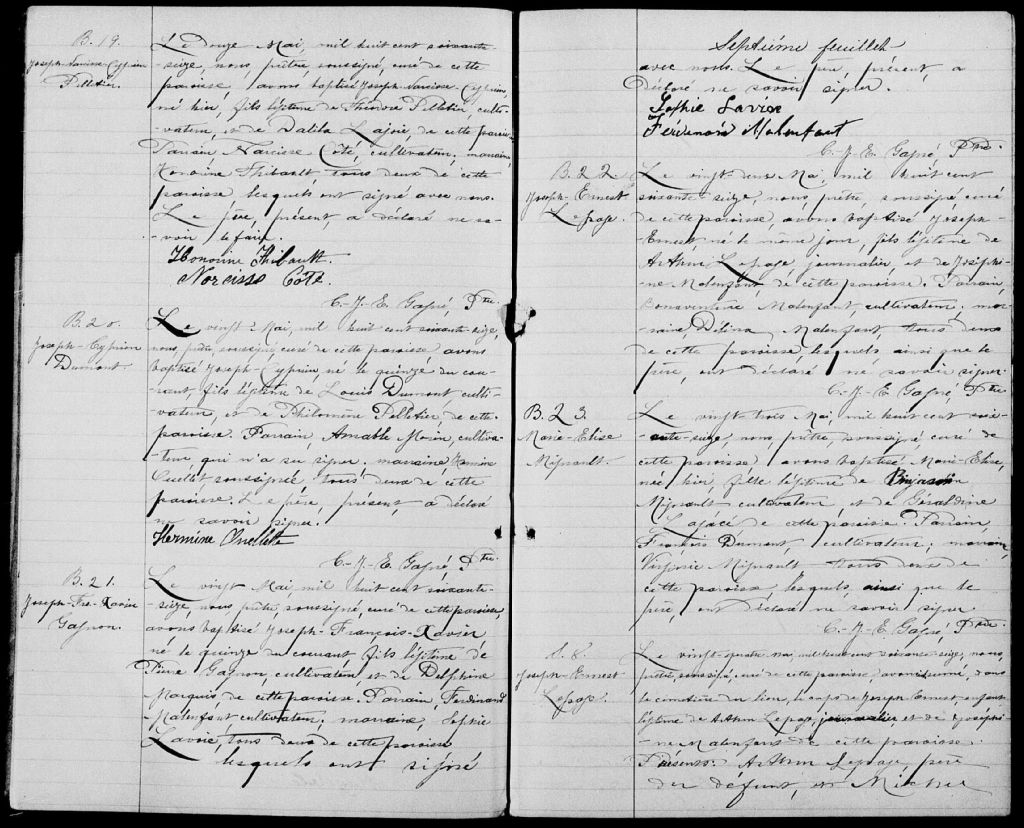 B. 19.
Joseph-Narcisse-Cyprien
Pelletier.
Le douze Mai, mil huit cent soixante
-seize, nous, prêtre soussigné, curé de cette
paroisse avons baptisé Joseph-Narcisse-Cyprien,
né hier, fils légitime de Théodore Pelletier, culti-
vateur, et de Dalila Lajoie de cette paroisse
Parrain Narcisse Côté, cultivateur; marraine,
Honorine Thibault tous deux de cette
paroisse lesquels ont signé avec nous.
Le père, présent, a déclaré ne sa-
-voir le faire.
Honorine Thibault.
Narcisse Côté.
C.-J.-E. Gagné, Ptre.
B. 20.
Joseph-Cyprien
Dumont.
Le vingt Mai, mil huit cent soixante-seize,
nous, prêtre, soussigné, curé de cette paroisse avons
baptisé Joseph-Cyprien, né le quinze du cou-
rant, fils légitime de Louis Dumont culti-
vateur, et de Philomène Pelletier, de cette
paroisse. Parrain, Amable Morin, cultiva-
teur qui n'a su signer. marraine, Hermine
Ouellet soussignée, tous deux de cette
paroisse. Le père, présent, a déclaré
ne savoir signer.
Hermine Ouellette
C.-J.-E. Gagné, Ptre.
B. 21.
Joseph-Frs-Xavier
Gagnon.
Le vingt Mai, mil huit cent soixante-
-seize, nous, prêtre, soussigné, curé de cette paroisse,
avons baptisé Joseph-François-Xavier
né le quinze du courant, fils légitime de
Pierre Gagnon, cultivateur, et de Delphine
Marquis, de cette paroisse. Parrain, Ferdinand
Malenfant cultivateur; marraine, Sophie
Lavoie, tous deux de cette paroisse
lesquels ont signé
Septième feuillet
avec nous. Le père, présent, a
déclaré ne savoir signer.
Sophie Lavoie
Ferdinand Malenfant
C.-J.-E. Gagné, Ptre.
B. 22
Joseph-Ernest
Lepage.
Le vingt-deux Mai, mil huit cent
soixante-seize, nous, prêtre, soussigné, curé
de cette paroisse, avons baptisé Joseph-
Ernest né le même jour, fils légitime de
Arthur Lepage, journalier, et de Joséphi-
ne Malenfant, de cette paroisse. Parrain,
Bonaventure Malenfant, cultivateur; mar-
raine, Délina Malenfant, tous deux
de cette paroisse, lesquels, ainsi que le
père, ont déclaré ne savoir signer.
C.-J.-E. Gagné, Ptre
B. 23.
Marie-Elise
Mignault.
Le vingt trois Mai, mil huit cent soix-
-ante-seize, nous, prêtre, soussigné, curé de
cette paroisse, avons baptisé Marie-Elise,
née hier, fille légitime de Benjamin
Mignault cultivateur, et de Géraldine
Lagacé de cette paroisse. Parrain,
Francis Dumont, cultivateur; marraine,
Virginie Mignault tous deux de
cette paroisse, lesquels, ainsi que le
père, ont déclaré ne savoir signer
C.-J.-E. Gagné, Ptre.
Joseph-Ernest
Lepage.
Le vingt-quatre mai, mil huit cent soixante-seize, nous,
prêtre, soussigné, curé de cette paroisse avons inhumé, dans
le cimetière du lieu, le corps de Joseph Ernest, enfant
légitime de Arthur Lepage, journalier et de Joséphi-
ne Malenfant de cette paroisse.
Présents: Arthur Lepage, père
du défunt, et Michel